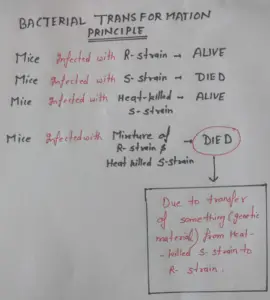 BACTERIAL TRANSFORMATION
PRINCIPLE
Mice Infected with R-strain → ALIVE
Mice Infected with S-strain → DIED
Mice Infected with Heat-killed → ALIVE
S-strain
Mice Infected with Mixture of → DIED
R-strain &
Heat killed S-strain
Due to transfer
of something (genetic
material) from Heat-
-killed S-strain to
R-strain.